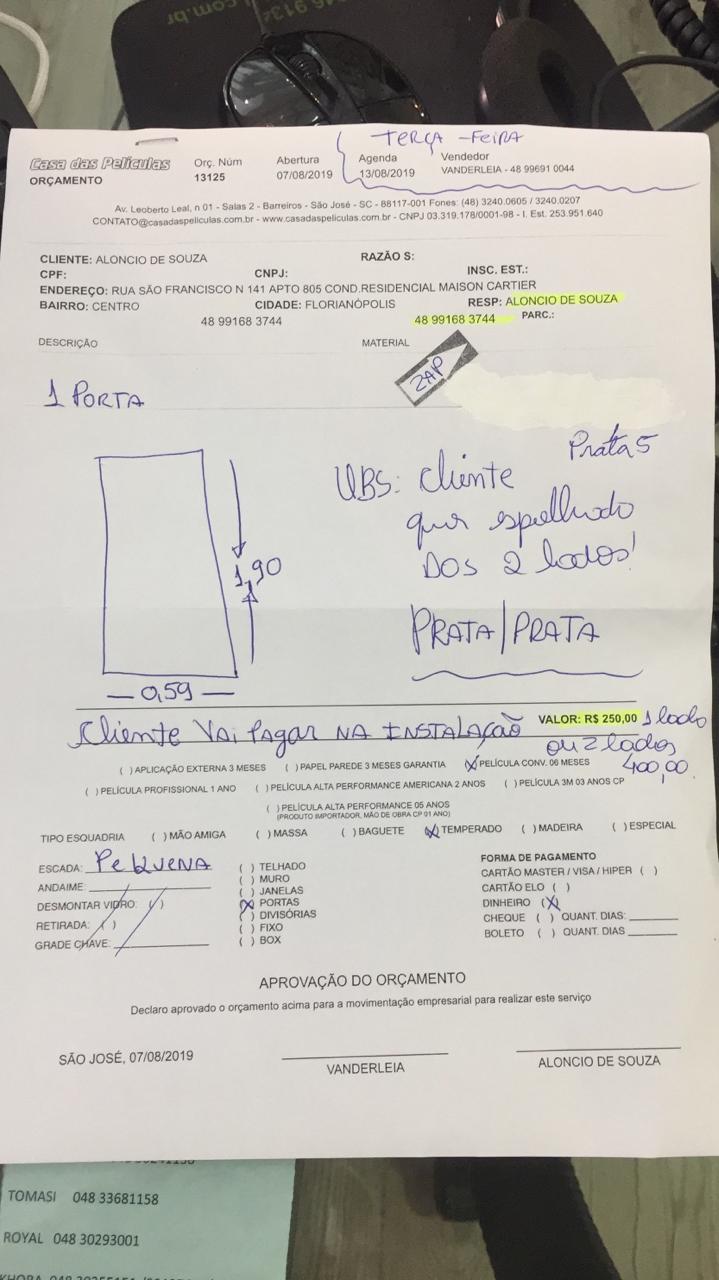 TERÇA - FEIRA
Casa das Películas
ORÇAMENTO
Orç. Núm
13125
Abertura
07/08/2019
Agenda
13/08/2019
Vendedor
VANDERLEIA - 48 99691 0044
Av. Leoberto Leal, n 01 - Salas 2 - Barreiros - São José - SC - 88117-001 Fones: (48) 3240.0605 / 3240.0207
CONTATO@casadaspeliculas.com.br - www.casadaspeliculas.com.br - CNPJ 03.319.178/0001-98 - I. Est. 253.951.640
CLIENTE: ALONCIO DE SOUZA RAZÃO S:
CPF: CNPJ: INSC. EST.:
ENDEREÇO: RUA SÃO FRANCISCO N 141 APTO 805 COND.RESIDENCIAL MAISON CARTIER
BAIRRO: CENTRO CIDADE: FLORIANÓPOLIS RESP: ALONCIO DE SOUZA
48 99168 3744 48 99168 3744 PARC.:
DESCRIÇÃO MATERIAL
ZAP
1 PORTA
Prata 5
OBS: Cliente
quer espelhado
DOS 2 lados!
1,90
PRATA/PRATA
0,59
Cliente Vai Pagar NA INSTALAÇÃO VALOR: R$ 250,00 1 lado
ou 2 lados
400,00
( ) APLICAÇÃO EXTERNA 3 MESES ( ) PAPEL PAREDE 3 MESES GARANTIA (X) PELÍCULA CONV. 06 MESES
( ) PELÍCULA PROFISSIONAL 1 ANO ( ) PELÍCULA ALTA PERFORMANCE AMERICANA 2 ANOS ( ) PELÍCULA 3M 03 ANOS CP
( ) PELÍCULA ALTA PERFORMANCE 05 ANOS
(PRODUTO IMPORTADOR, MÃO DE OBRA CP 01 ANO)
TIPO ESQUADRIA ( ) MÃO AMIGA ( ) MASSA ( ) BAGUETE (X) TEMPERADO ( ) MADEIRA ( ) ESPECIAL
ESCADA: PeQUENA
ANDAIME:
DESMONTAR VIDRO: ( )
RETIRADA: ( )
GRADE CHAVE:
( ) TELHADO
( ) MURO
( ) JANELAS
(X) PORTAS
( ) DIVISÓRIAS
( ) FIXO
( ) BOX
FORMA DE PAGAMENTO
CARTÃO MASTER / VISA / HIPER ( )
CARTÃO ELO ( )
DINHEIRO (X)
CHEQUE ( ) QUANT. DIAS:
BOLETO ( ) QUANT. DIAS
APROVAÇÃO DO ORÇAMENTO
Declaro aprovado o orçamento acima para a movimentação empresarial para realizar este serviço
SÃO JOSÉ, 07/08/2019
VANDERLEIA
ALONCIO DE SOUZA
TOMASI 048 33681158
ROYAL 048 30293001